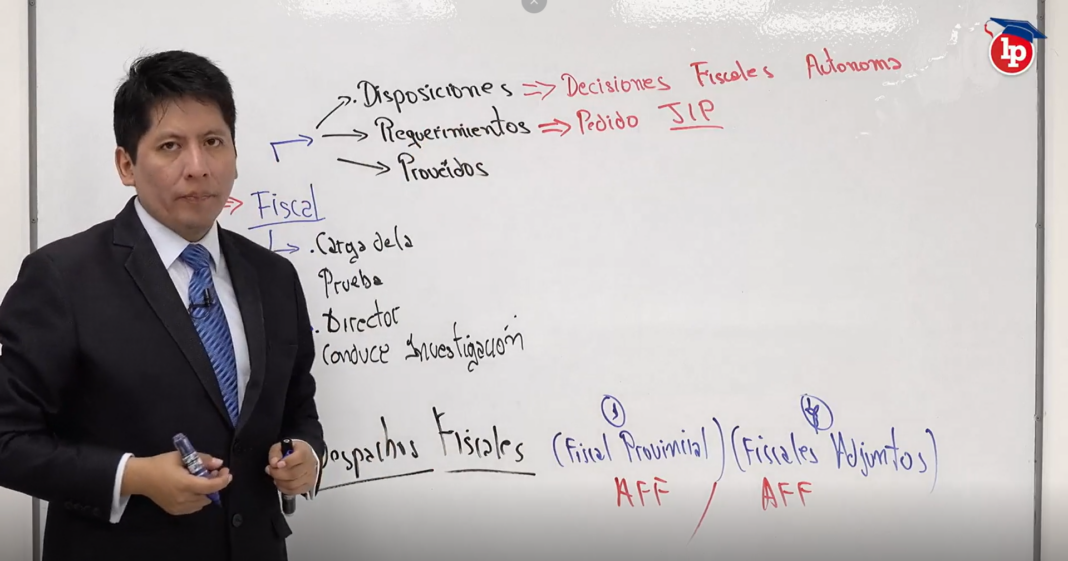 lp
. Disposiciones ⇒ Decisiones Fiscales Autonoms
→ Requerimientos ⇒ Pedido JIP
→ Provéidos
⇒ Fiscal
. Carga de la
Prueba
. Director
Conduce Investigación
Despachos Fiscales (Fiscal Provincial) (Fiscales Adjuntos)
AFF / AFF